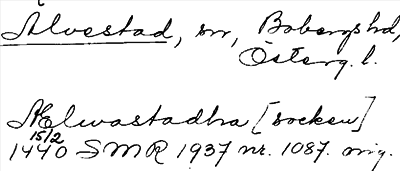 Älvestad, sn, Bobergs hd,
Österg. l.
Ælwastadha [socken]
15/2
1440 SMR 1937 nr. 1087. orig.